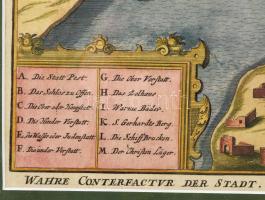 A. Die Statt Pest.
B. Das Schlos zu Ofen.
C. Die Ober oder Hauptstatt
D. Die Wonder Vorstatt.
E. die Wasser oder Judenstatt
F. Die under Vorstatt.
G. Die Ober Vorstatt.
H. Das Zolhaus,
I. Warme Bäder.
K. S. Gerhardts Berg.
L. Die Schiff Brucken.
M. Der Christen Läger.
WAHRE CONTERFACTVR DER STADT.